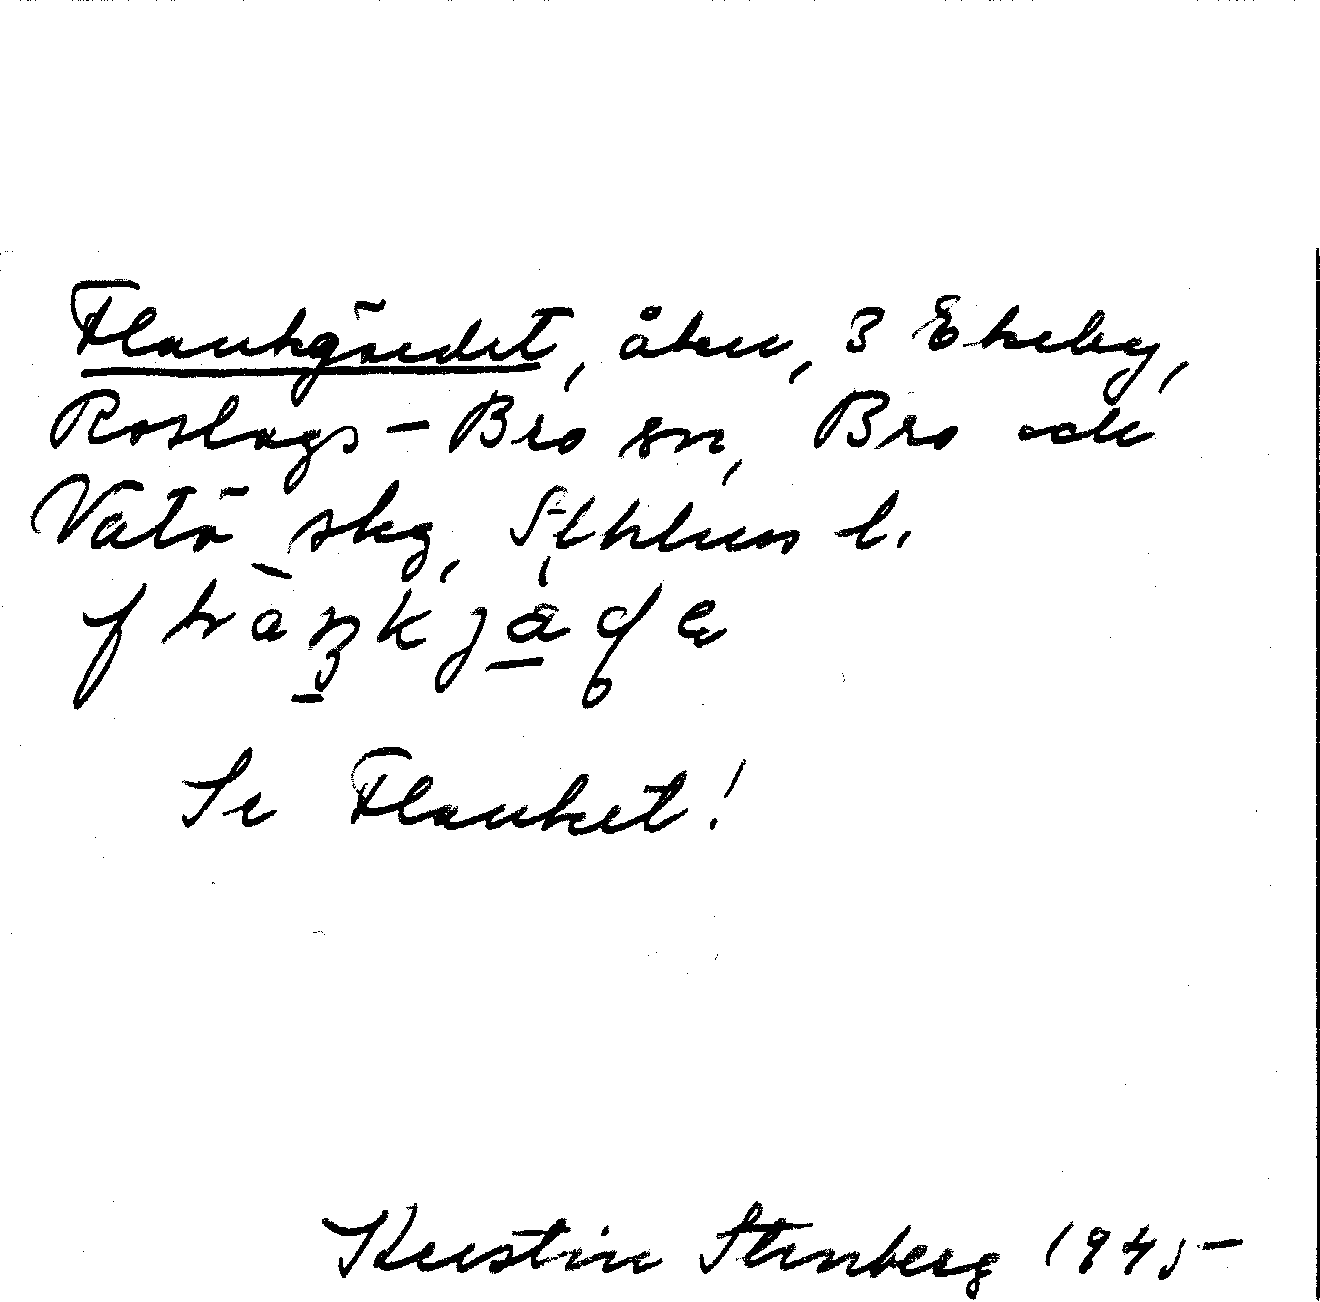 Flankgärdet, åker, 3 Ekeby,
Roslags-Bro sn, Bro och
Vätö skg, Sthlms l.
Se Flanket!
Kerstin Stenberg 1945